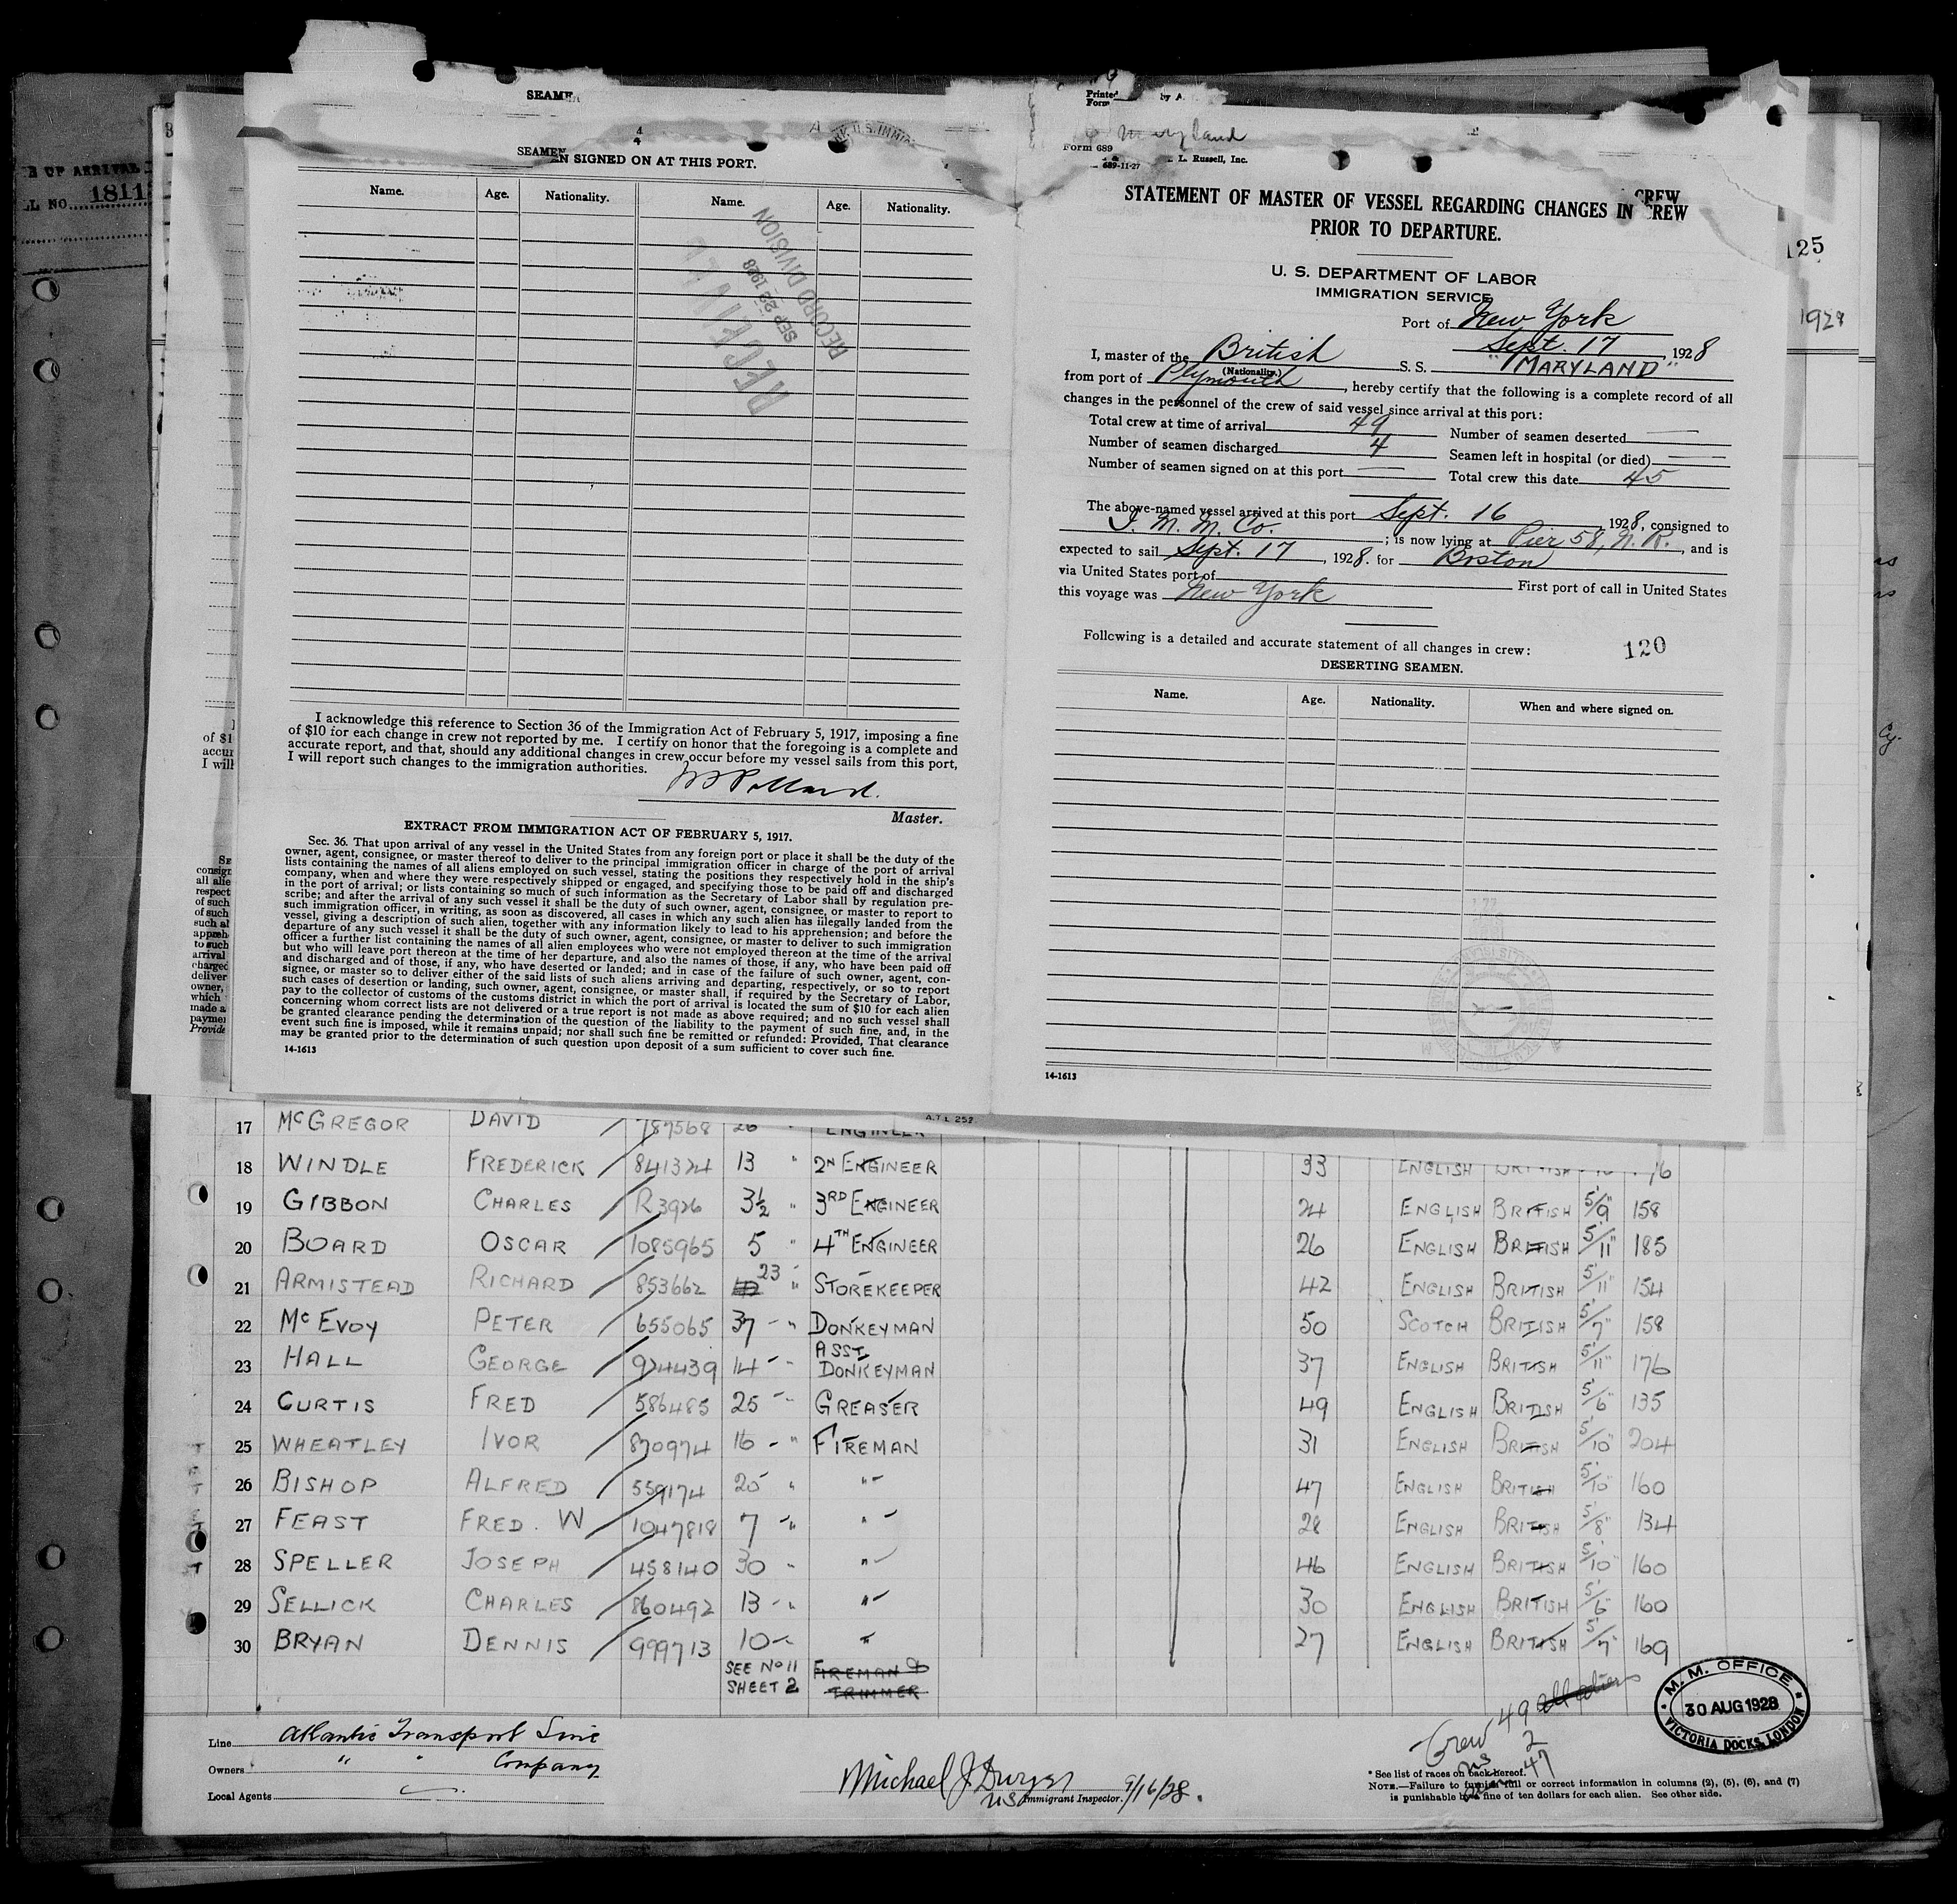 E OF ARRIVAL
LL NO. 1811
SEAME
4
4
SEAMEN
EN SIGNED ON AT THIS PORT.
Name. Age. Nationality. Name. Age. Nationality.
RECEIVED
SEP 22 1928
RECORD DIVISION
I acknowledge this reference to Section 36 of the Immigration Act of February 5, 1917, imposing a fine
of $10 for each change in crew not reported by me. I certify on honor that the foregoing is a complete and
accurate report, and that, should any additional changes in crew occur before my vessel sails from this port,
I will report such changes to the immigration authorities.
Master.
EXTRACT FROM IMMIGRATION ACT OF FEBRUARY 5, 1917.
Sec. 36. That upon arrival of any vessel in the United States from any foreign port or place it shall be the duty of the
owner, agent, consignee, or master thereof to deliver to the principal immigration officer in charge of the port of arrival
lists containing the names of all aliens employed on such vessel, stating the positions they respectively hold in the ship's
company, when and where they were respectively shipped or engaged, and specifying those to be paid off and discharged
in the port of arrival; or lists containing so much of such information as the Secretary of Labor shall by regulation pre-
scribe; and after the arrival of any such vessel it shall be the duty of such owner, agent, consignee, or master to report to
such immigration officer, in writing, as soon as discovered, all cases in which any such alien has illegally landed from the
vessel, giving a description of such alien, together with any information likely to lead to his apprehension; and before the
departure of any such vessel it shall be the duty of such owner, agent, consignee, or master to deliver to such immigration
officer a further list containing the names of all alien employees who were not employed thereon at the time of the arrival
but who will leave port thereon at the time of her departure, and also the names of those, if any, who have been paid off
and discharged and of those, if any, who have deserted or landed; and in case of the failure of such owner, agent, con-
signee, or master so to deliver either of the said lists of such aliens arriving and departing, respectively, or so to report
such cases of desertion or landing, such owner, agent, consignee, or master shall, if required by the Secretary of Labor,
pay to the collector of customs of the customs district in which the port of arrival is located the sum of $10 for each alien
concerning whom correct lists are not delivered or a true report is not made as above required; and no such vessel shall
be granted clearance pending the determination of the question of the liability to the payment of such fine, and, in the
event such fine is imposed, while it remains unpaid; nor shall such fine be remitted or refunded: Provided, That clearance
may be granted prior to the determination of such question upon deposit of a sum sufficient to cover such fine.
14-1613
Printed by A.
Form
Maryland
Form 689
689-11-27 L. Russell, Inc.
STATEMENT OF MASTER OF VESSEL REGARDING CHANGES IN CREW
PRIOR TO DEPARTURE.
U. S. DEPARTMENT OF LABOR
IMMIGRATION SERVICE
Port of New York
Sept. 17, 1928
I, master of the British S. S. "MARYLAND"
(Nationality.)
from port of Plymouth, hereby certify that the following is a complete record of all
changes in the personnel of the crew of said vessel since arrival at this port:
Total crew at time of arrival 49 Number of seamen deserted —
Number of seamen discharged 4 Seamen left in hospital (or died) —
Number of seamen signed on at this port — Total crew this date 45
The above-named vessel arrived at this port Sept. 16, 1928, consigned to
I. M. M. Co.; is now lying at Pier 58, N. R., and is
expected to sail Sept. 17, 1928. for Boston
via United States port of First port of call in United States
this voyage was New York
Following is a detailed and accurate statement of all changes in crew: 120
DESERTING SEAMEN.
Name. Age. Nationality. When and where signed on.
14-1613
125
1928
A.T.L 252.
17 MCGREGOR DAVID 787568 26 " ENGINEER
18 WINDLE FREDERICK 841324 13 " 2ND ENGINEER 33 ENGLISH BRITISH
19 GIBBON CHARLES R3926 3½ " 3RD ENGINEER 24 ENGLISH BRITISH 5/9" 158
20 BOARD OSCAR 1085965 5 " 4TH ENGINEER 26 ENGLISH BRITISH 5/11" 185
21 ARMISTEAD RICHARD 853662 23 " STOREKEEPER 42 ENGLISH BRITISH 5/11" 154
22 MCEVOY PETER 655065 37 " DONKEYMAN 50 SCOTCH BRITISH 5/7" 158
23 HALL GEORGE 924439 14 " ASST DONKEYMAN 37 ENGLISH BRITISH 5/11" 176
24 CURTIS FRED 586485 25 " GREASER 49 ENGLISH BRITISH 5/6" 135
25 WHEATLEY IVOR 870974 16 " FIREMAN 31 ENGLISH BRITISH 5/10" 204
26 BISHOP ALFRED 559174 25 " " 47 ENGLISH BRITISH 5/10" 160
27 FEAST FRED. W 1047818 7 " " 28 ENGLISH BRITISH 5/8" 134
28 SPELLER JOSEPH 458140 30 " " 46 ENGLISH BRITISH 5/10" 160
29 SELLICK CHARLES 860492 13 " " 30 ENGLISH BRITISH 5/6" 160
30 BRYAN DENNIS 999713 10 " " 27 ENGLISH BRITISH 5/7" 169
SEE No 11 FIREMAN &
SHEET 2 TRIMMER
Line Atlantic Transport Line
Owners " " Company
Local Agents
Michael J Dwyer
Immigrant Inspector. 9/16/28.
Crew 49 all aliens
2
47
I. M. M. OFFICE
30 AUG 1928
VICTORIA DOCKS, LONDON
* See list of races on back hereof.
NOTE.—Failure to furnish full or correct information in columns (2), (5), (6), and (7)
is punishable by a fine of ten dollars for each alien. See other side.